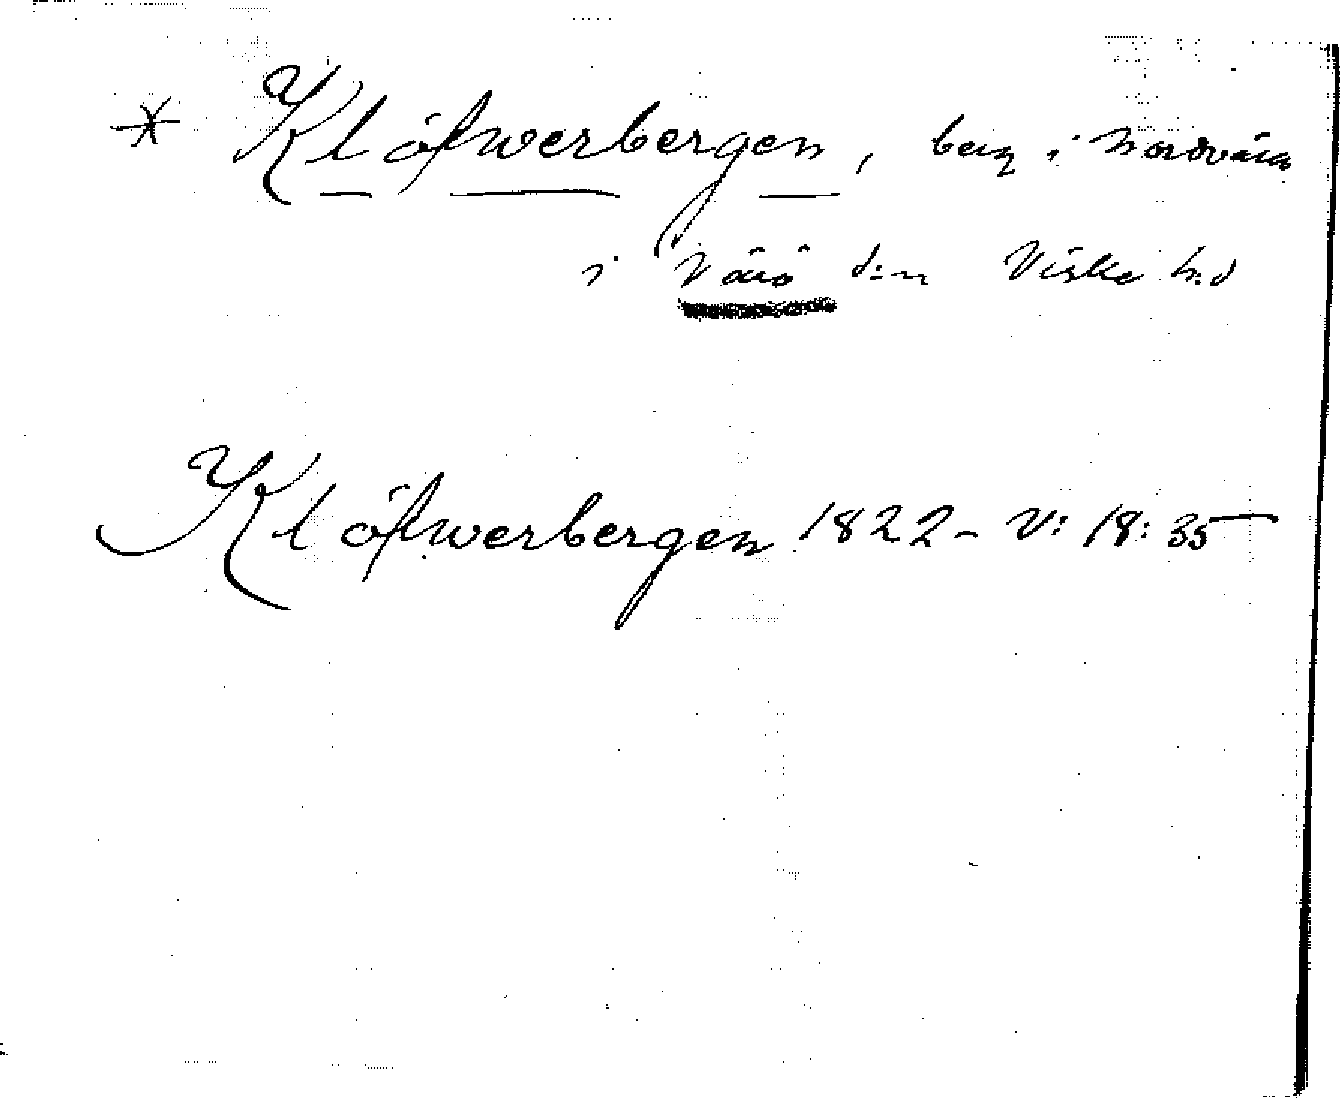 * Klöfwerbergen, berg i Nordvära
i Värö s:n Viske h:d
Klöfwerbergen 1822 - V: 18: 35